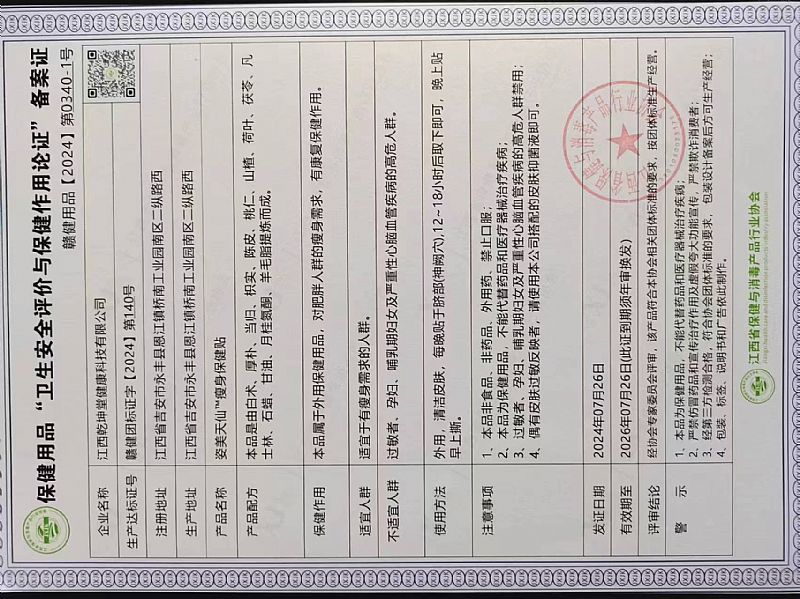 保健用品“卫生安全评价与保健作用论证”备案证
赣健用品【2024】第0340-1号
企业名称 江西乾坤堂健康科技有限公司
生产达标证号 赣健团标证字【2024】第140号
注册地址 江西省吉安市永丰县恩江镇桥南工业园南区二纵路西
生产地址 江西省吉安市永丰县恩江镇桥南工业园南区二纵路西
产品名称 姿美天仙™瘦身保健贴
产品配方 本品是由白术、厚朴、当归、枳实、陈皮、桃仁、山楂、荷叶、茯苓、凡
士林、石蜡、甘油、月桂氮酮、羊毛脂提炼而成。
保健作用 本品属于外用保健用品，对肥胖人群的瘦身需求，有康复保健作用。
适宜人群 适宜于有瘦身需求的人群。
不适宜人群 过敏者、孕妇、哺乳期妇女及严重性心脑血管疾病的高危人群。
使用方法 外用，清洁皮肤，每晚贴于脐部(神阙穴),12~18小时后取下即可，晚上贴
早上撕。
注意事项 1、本品非食品、非药品、外用药、禁止口服；
2、本品为保健用品，不能代替药品和医疗器械治疗疾病；
3、过敏者、孕妇、哺乳期妇女及严重性心脑血管疾病的高危人群禁用；
4、偶有皮肤过敏反映者，请使用本公司搭配的皮肤抑菌液即可。
发证日期 2024年07月26日
有效期至 2026年07月26日(此证到期须年审换发)
评审结论 经协会专家委员会评审，该产品符合本协会相关团体标准的要求，按团体标准生产经营。
警 示 1、本品为保健用品，不能代替药品和医疗器械治疗疾病；
2、严禁仿冒药品和宣传治疗作用及虚假夸大功能宣传，严禁欺诈消费者；
3、经第三方检测合格，符合协会团体标准的要求，包装设计备案后方可生产经营；
4、包装、标签、说明书和广告依此制作。
江西省保健与消毒产品行业协会